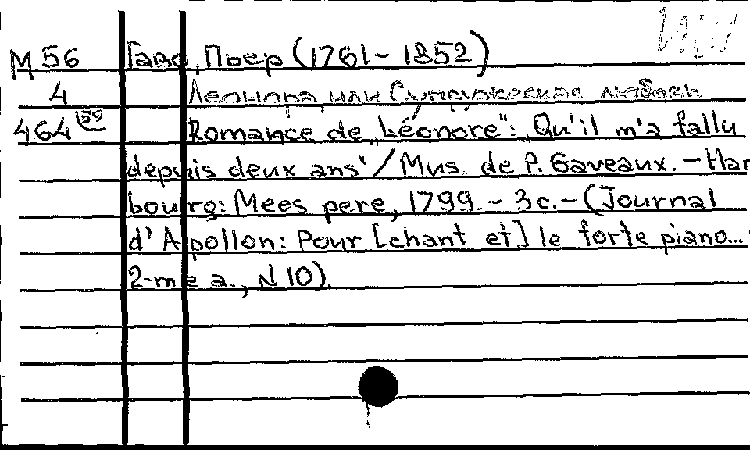 М 56 Гаво, Пьер (1761-1852)
4 Леонора, или Супружеская любовь
464 Romance de „Léonore": Qu'il m'a fallu
depuis deux ans"/Mus. de P. Gaveaux. - Ham
bourg: Mees pere, 1799. - 3 c. - (Journal
d'Apollon: Pour [chant et] le forte piano...
2-me a., N 10).